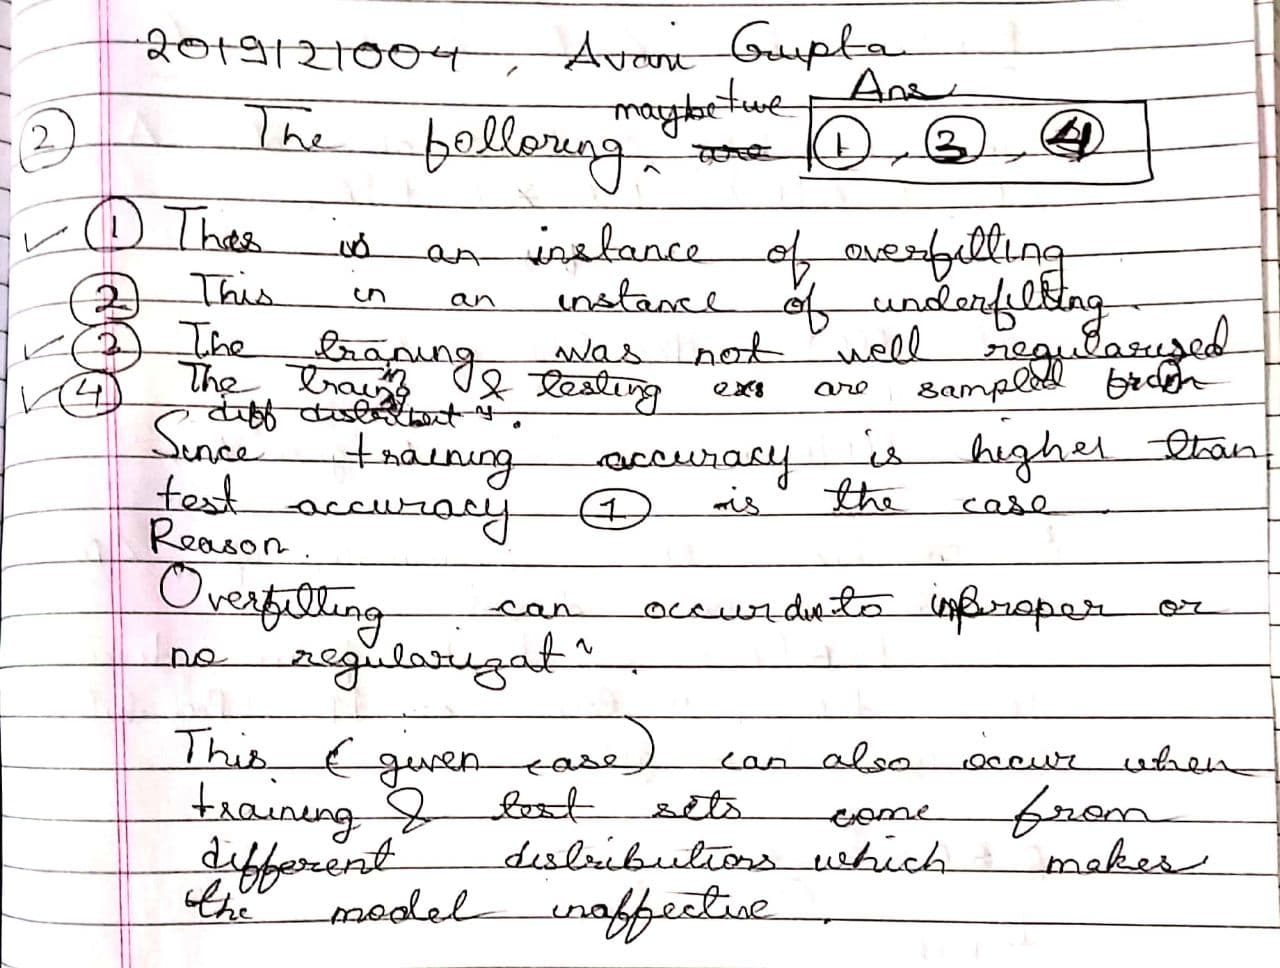 2019121004, Avani Gupta
Ans
maybe true
② The following ^ are ①, ③, ④
✓ ① This is an instance of overfitting
② This in an instance of underfitting
✓ ③ The traning was not well regularised
✓ ④ The traing & testing exs are sampled from
in
diff distributⁿ.
Since training accuracy is higher than
test accuracy ① is the case.
Reason.
Overfitting can occur due to improper or
no regularizatⁿ.
This (given case) can also occur when
training & test sets come from
different distributions which makes
the model inaffective.